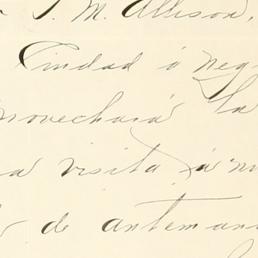 J. M. Allison,
Ciudad ó neg
provechará la
a visita á mi
de anteman